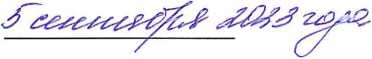 5 сентября 2023 года